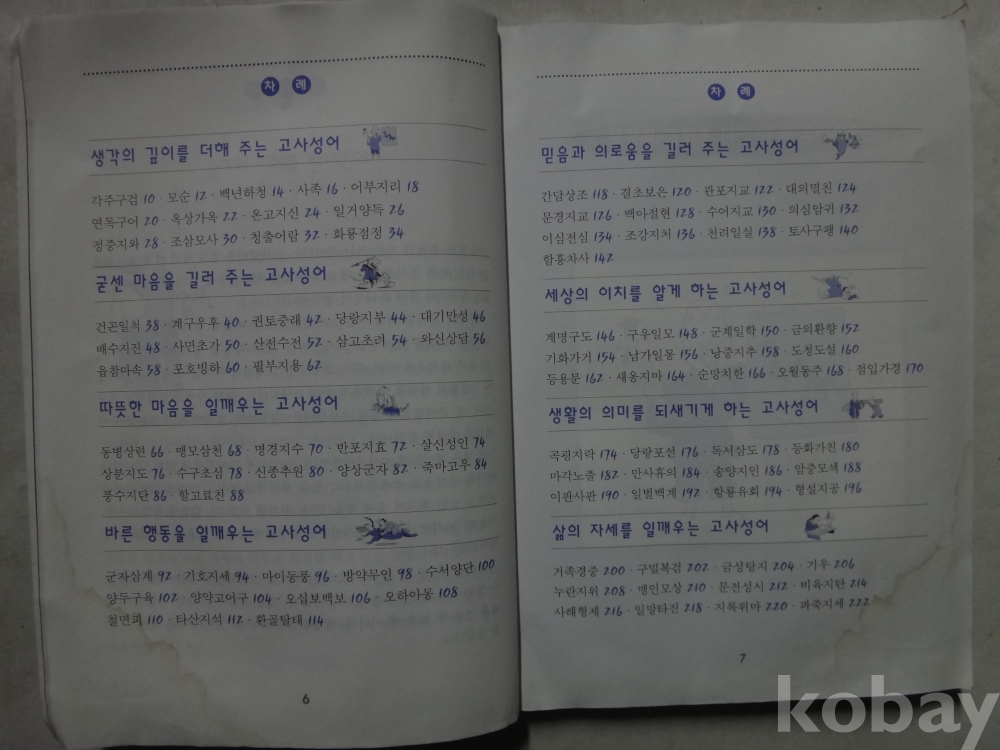 차 례
생각의 깊이를 더해 주는 고사성어
각주구검 10 · 모순 12 · 백년하청 14 · 사족 16 · 어부지리 18
연목구어 20 · 옥상가옥 22 · 온고지신 24 · 일거양득 26
정중지와 28 · 조삼모사 30 · 청출어람 32 · 화룡점정 34
굳센 마음을 길러 주는 고사성어
건곤일척 38 · 계구우후 40 · 권토중래 42 · 당랑지부 44 · 대기만성 46
배수지진 48 · 사면초가 50 · 산전수전 52 · 삼고초려 54 · 와신상담 56
읍참마속 58 · 포호빙하 60 · 필부지용 62
따뜻한 마음을 일깨우는 고사성어
동병상련 66 · 맹모삼천 68 · 명경지수 70 · 반포지효 72 · 살신성인 74
상분지도 76 · 수구초심 78 · 신종추원 80 · 양상군자 82 · 죽마고우 84
풍수지탄 86 · 할고료친 88
바른 행동을 일깨우는 고사성어
군자삼계 92 · 기호지세 94 · 마이동풍 96 · 방약무인 98 · 수서양단 100
양두구육 102 · 양약고어구 104 · 오십보백보 106 · 오하아몽 108
철면피 110 · 타산지석 112 · 환골탈태 114
6
차 례
믿음과 의로움을 길러 주는 고사성어
간담상조 118 · 결초보은 120 · 관포지교 122 · 대의멸친 124
문경지교 126 · 백아절현 128 · 수어지교 130 · 의심암귀 132
이심전심 134 · 조강지처 136 · 천려일실 138 · 토사구팽 140
함흥차사 142
세상의 이치를 알게 하는 고사성어
계명구도 146 · 구우일모 148 · 군계일학 150 · 금의환향 152
기화가거 154 · 남가일몽 156 · 낭중지추 158 · 도청도설 160
등용문 162 · 새옹지마 164 · 순망치한 166 · 오월동주 168 · 점입가경 170
생활의 의미를 되새기게 하는 고사성어
곡굉지락 174 · 당랑포선 176 · 독서삼도 178 · 등화가친 180
마각노출 182 · 만사휴의 184 · 송양지인 186 · 암중모색 188
이판사판 190 · 일벌백계 192 · 항룡유회 194 · 형설지공 196
삶의 자세를 일깨우는 고사성어
거족경중 200 · 구밀복검 202 · 금성탕지 204 · 기우 206
누란지위 208 · 맹인모상 210 · 문전성시 212 · 비육지탄 214
사해형제 216 · 일망타진 218 · 지록위마 220 · 파죽지세 222
7
kobay